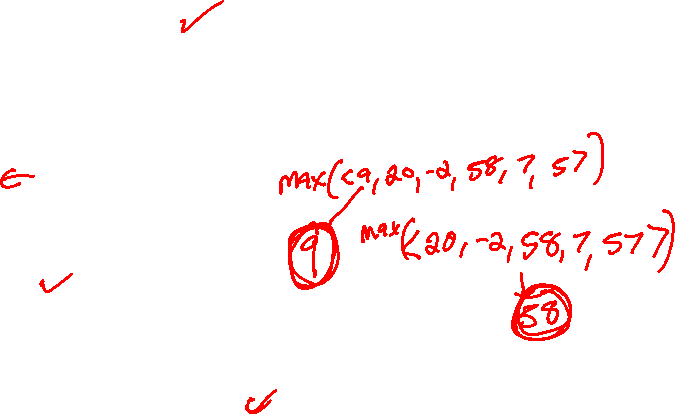 max(<9, 20, -2, 58, 7, 57)
9
max(<20, -2, 58, 7, 57>)
58